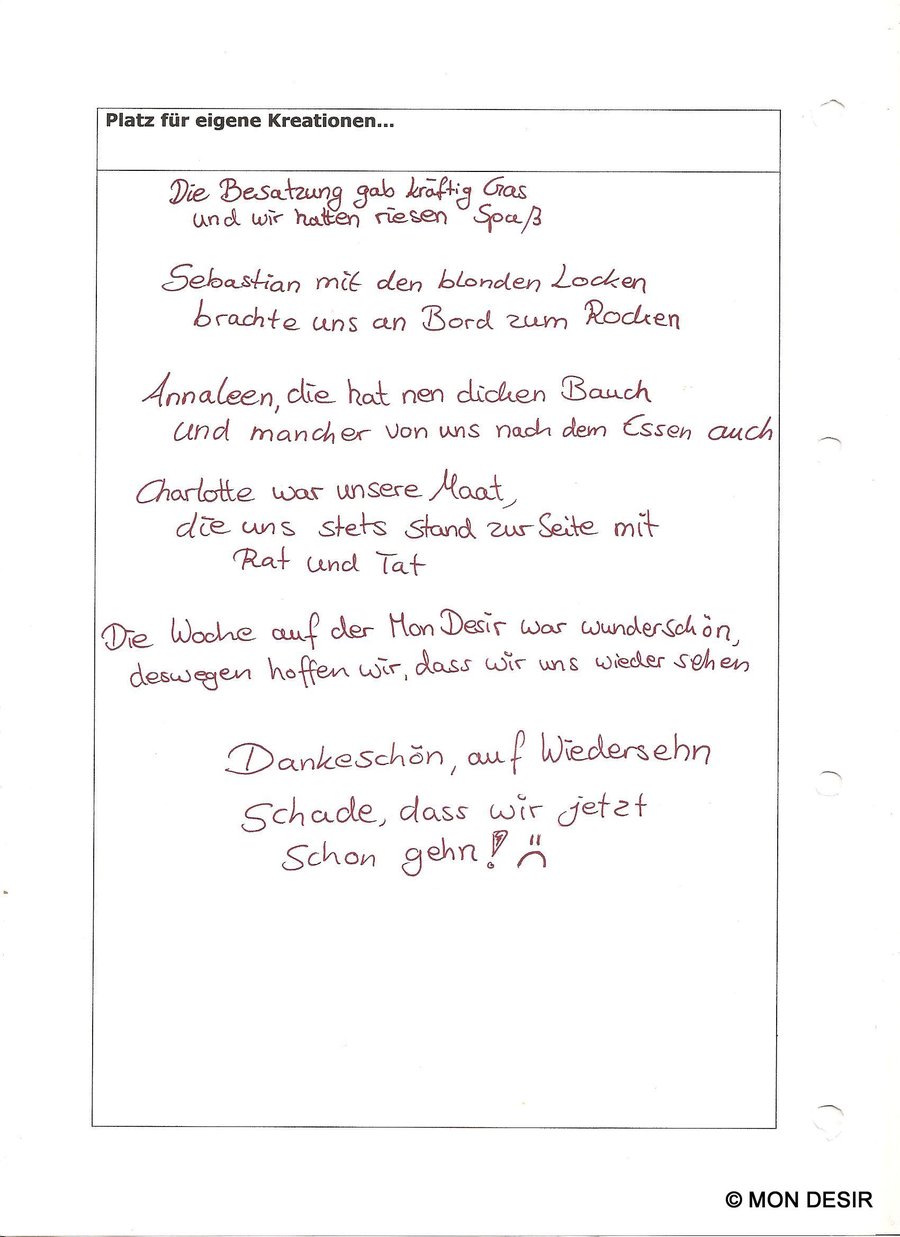 Platz für eigene Kreationen...
Die Besatzung gab kräftig Gas
und wir hatten riesen Spaß
Sebastian mit den blonden Locken
brachte uns an Bord zum Rocken
Annaleen, die hat nen dicken Bauch
und mancher von uns nach dem Essen auch
Charlotte war unsere Maat,
die uns stets stand zur Seite mit
Rat und Tat
Die Woche auf der Mon Desir war wunderschön,
deswegen hoffen wir, dass wir uns wieder sehen
Dankeschön, auf Wiedersehn
Schade, dass wir jetzt
schon gehn!
© MON DESIR